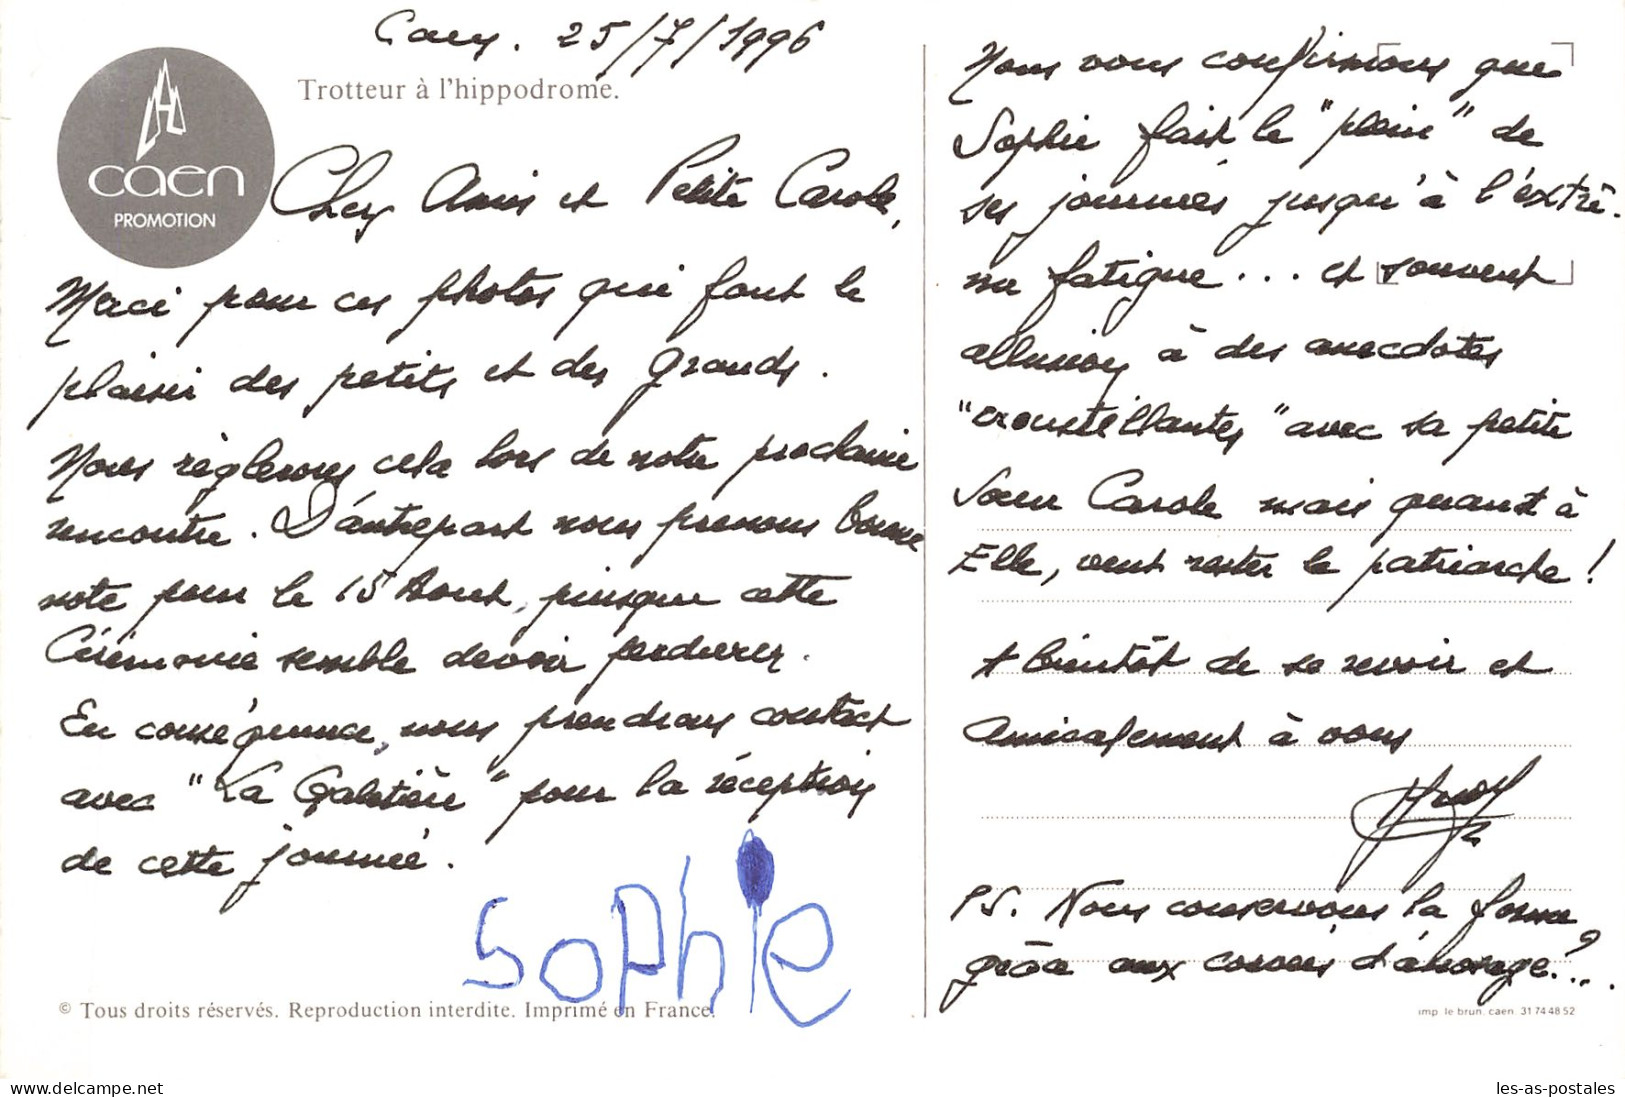 Caen. 25/7/1996
Trotteur à l'hippodrome.
caen
PROMOTION
Chers Amis et Petite Carole,
Merci pour ces photos qui font le
plaisir des petits et des grands.
Nous règlerons cela lors de notre prochaine
rencontre. D'autrepart nous prenons bonne
note pour le 15 Aout, puisque cette
Cérémonie semble devoir perdurer.
En conséquence, nous prendrons contact
avec "La Galetière" pour la réception
de cette journée.
Sophie
© Tous droits réservés. Reproduction interdite. Imprimé en France.
Nous vous confirmons que
Sophie fait le "plein" de
ses journées jusqu'à l'extrê-
me fatigue... et souvent
allusion à des anecdotes
"croustillantes" avec sa petite
Soeur Carole mais quant à
Elle, veut rester le patriarche!
A bientôt de se revoir et
Amicalement à vous
PS. Nous conservons la forme
grâce aux corvées d'arrosage?...
imp. le brun. caen 31 74 48 52
www.delcampe.net
les-as-postales